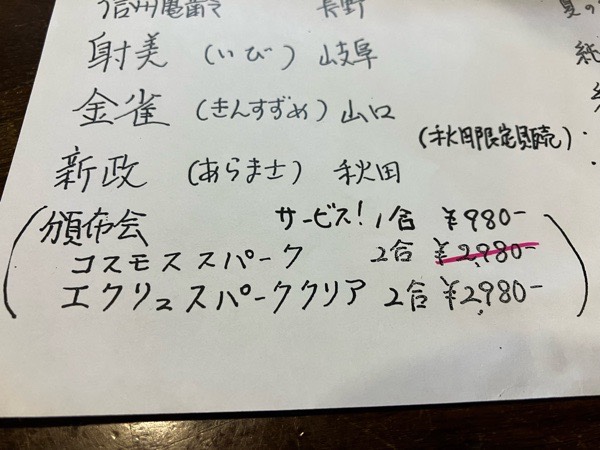 信州亀齢 長野
夏の
射美 (いび) 岐阜
金雀 (きんすずめ) 山口
(秋田限定販売)
新政 (あらまさ) 秋田
頒布会 サービス! 1合 ¥980-
コスモススパーク 2合 ¥2,980-
エクリュスパーククリア 2合 ¥2,980-